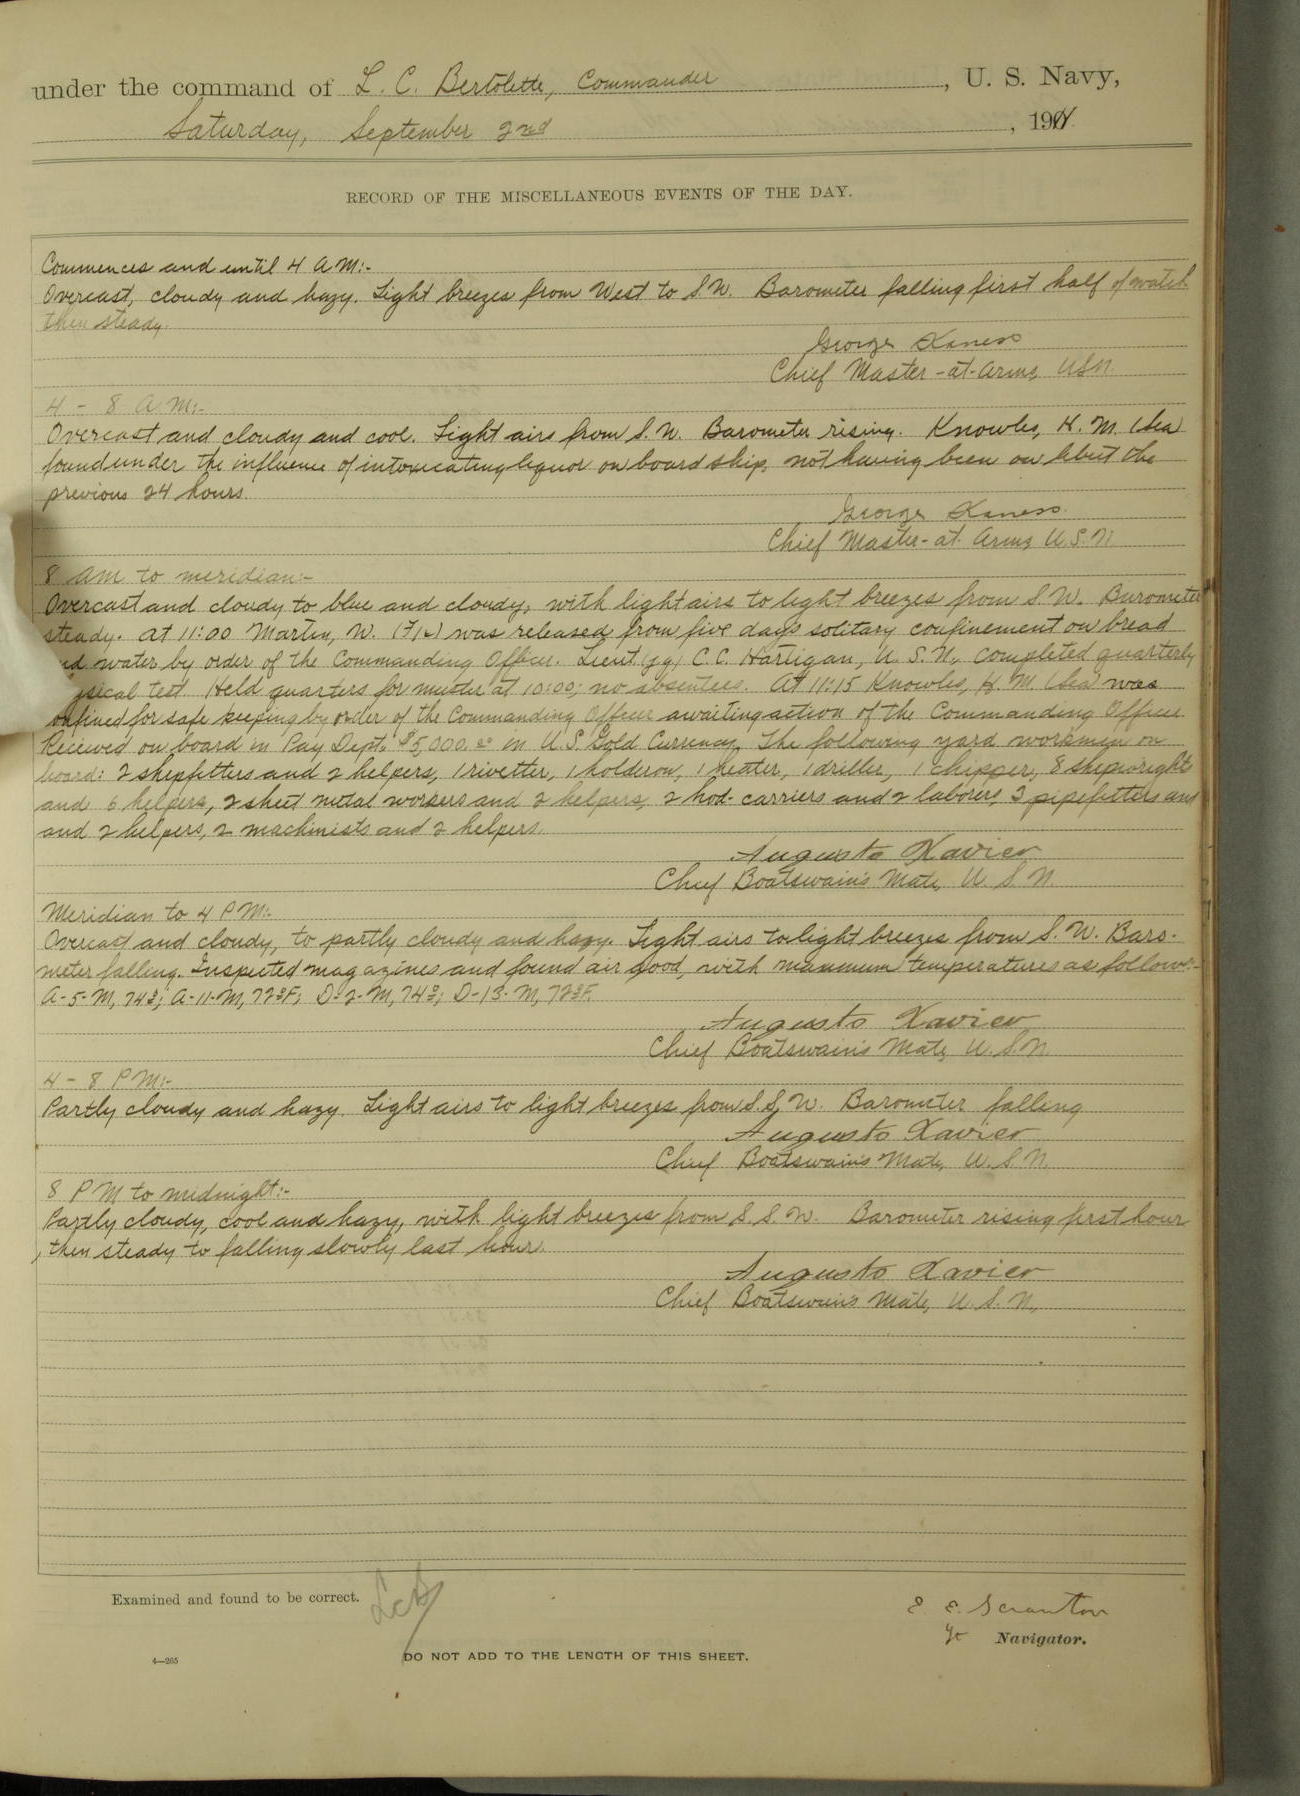 under the command of L. C. Bertolette, Commander, U. S. Navy,
Saturday, September 2nd, 1911.
RECORD OF THE MISCELLANEOUS EVENTS OF THE DAY.
Commences and until 4 A M:-
Overcast, cloudy and hazy. Light breezes from West to S.W. Barometer falling first half of watch
then steady.
George
Chief Master-at-Arms, USN.
4 - 8 A M:-
Overcast and cloudy and cool. Light airs from S.W. Barometer rising. Knowles, H. M. (Sea
found under the influence of intoxicating liquor on board ship, not having been on libert the
previous 24 hours.
George
Chief Master-at-Arms, U.S.N.
8 AM to meridian:-
Overcast and cloudy to blue and cloudy, with light airs to light breezes from S.W. Barometer
steady. At 11:00 Martin, W. (F1c) was released from five days solitary confinement on bread
nd water by order of the Commanding Officer. Lieut (jg) C. C. Hartigan, U. S. N., completed quarterly
ysical test. Held quarters for muster at 10:00; no absentees. At 11:15 Knowles, H. M. (Sea) was
onfined for safe keeping by order of the Commanding Officer awaiting action of the Commanding Officer
Received on board in Pay Dept. $5,000.00 in U.S. Gold Currency. The following yard workmen on
board: 2 shipfitters and 2 helpers, 1 rivetter, 1 holderon, 1 heater, 1 driller, 1 chipper, 8 shipwright
and 6 helpers, 2 sheet metal workers and 2 helpers, 2 hod-carriers and 2 laborers, 3 pipefitters and
and 2 helpers, 2 machinists and 2 helpers.
Augusto Xavier
Chief Boatswain's Mate, U. S. N.
Meridian to 4 P M:-
Overcast and cloudy, to partly cloudy and hazy. Light airs to light breezes from S.W. Baro-
meter falling. Inspected magazines and found air good, with maximum temperatures as follows:-
A-5-M, 74°; A-11-M, 72°F; D-2-M, 74°; D-13-M, 72°F.
Augusto Xavier
Chief Boatswain's Mate, U. S. N.
4 - 8 P M:-
Partly cloudy and hazy. Light airs to light breezes from S.S.W. Barometer falling
Augusto Xavier
Chief Boatswain's Mate, U. S. N.
8 P M to midnight:-
Partly cloudy, cool and hazy, with light breezes from S. S. W. Barometer rising first hour
, then steady to falling slowly last hour.
Augusto Xavier
Chief Boatswain's Mate, U. S. N.,
Examined and found to be correct. LCB
E. E. Scranton
Navigator.
4—265
DO NOT ADD TO THE LENGTH OF THIS SHEET.